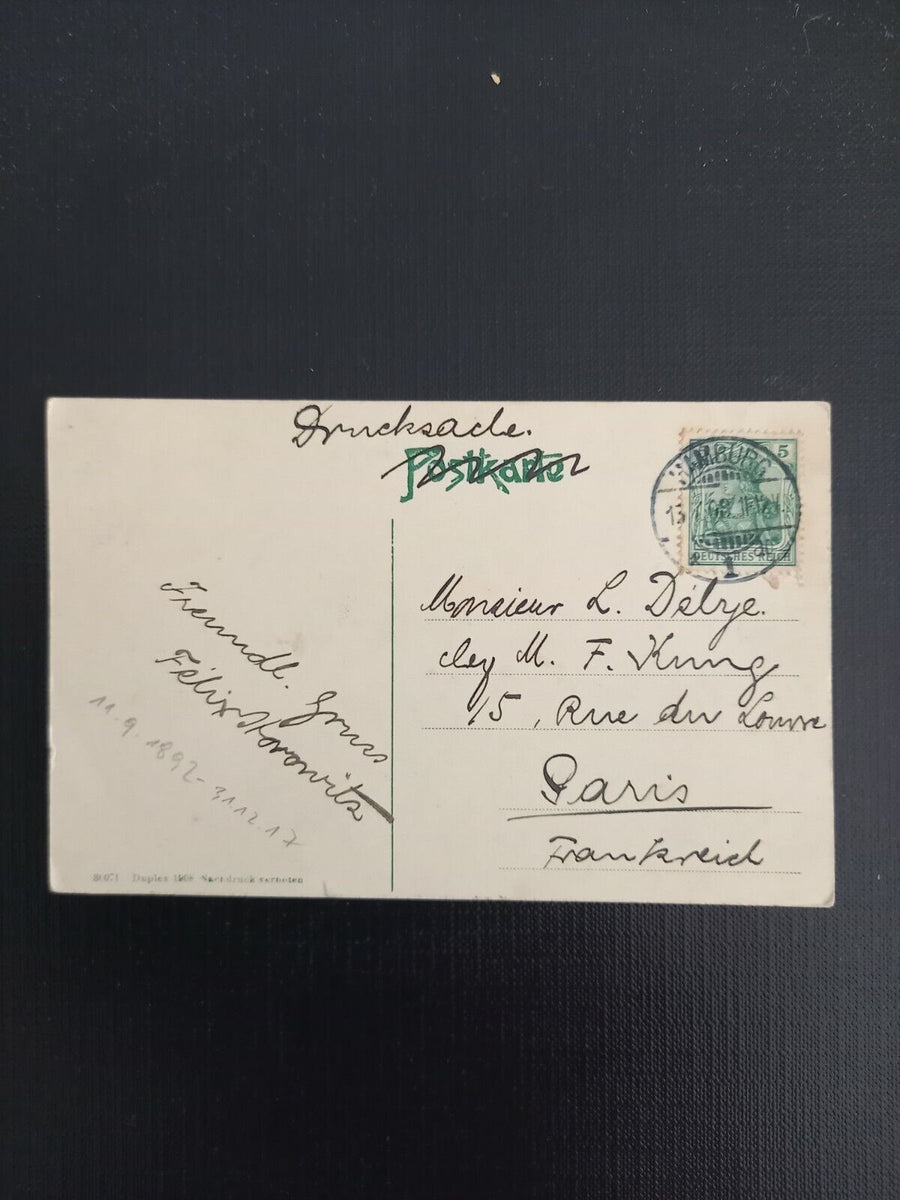 Drucksache.
Postkarte
HAMBURG
13. 09. 11-12V.
1
5
DEUTSCHES REICH
Monsieur L.
M. F. Kung
15, Rue du Louvre
Paris
Frankreich
Freundl. Gruss
Felix Horowitz
11.9.1892-31.12.17
Duplex Nachdruck verboten